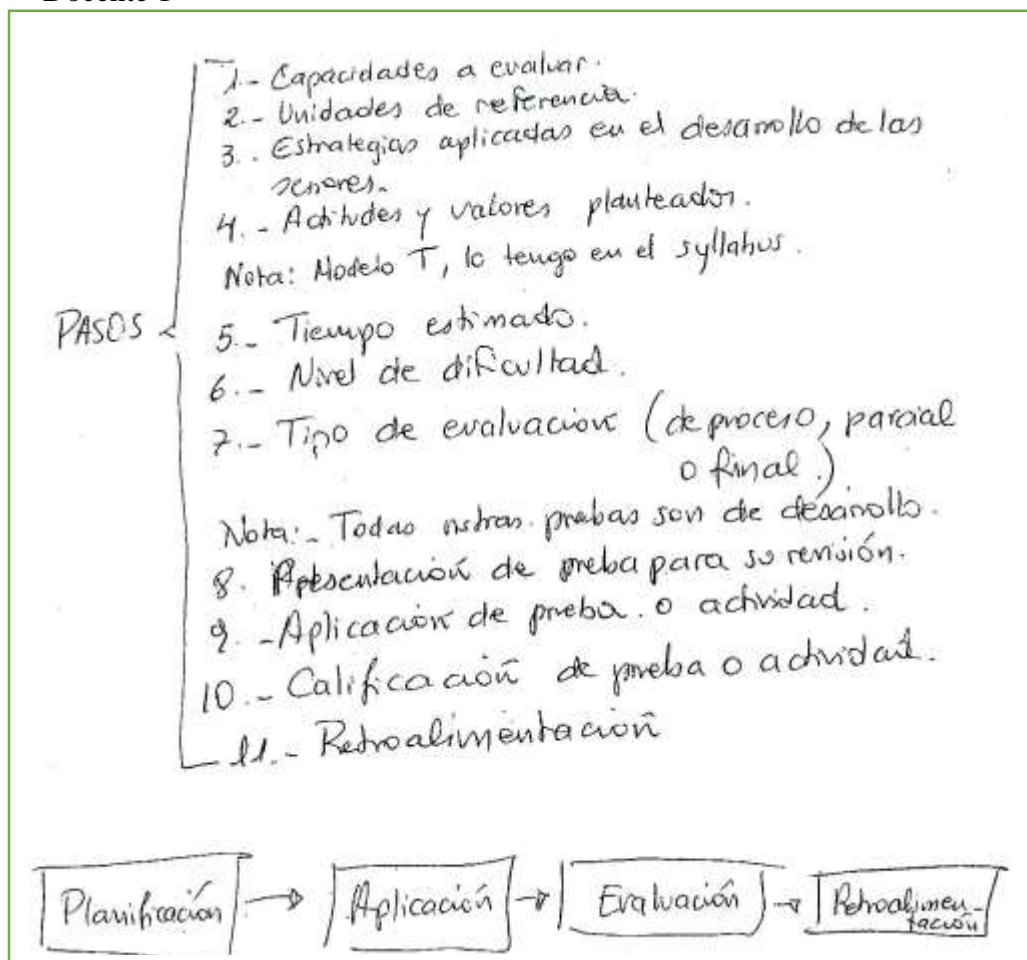 1.- Capacidades a evaluar.
2.- Unidades de referencia.
3.- Estrategias aplicadas en el desarrollo de las
4.- Actitudes y valores planteados.
Nota: Modelo T, lo tengo en el syllabus.
PASOS
5.- Tiempo estimado.
6.- Nivel de dificultad.
7.- Tipo de evaluación (de proceso, parcial
o final.)
Nota:- Todas nstras. prebas son de desarrollo.
8. Presentación de preba para su revisión.
9.- Aplicación de prueba. o actividad.
10.- Calificación de prueba o actividad.
11.- Retroalimentación
Planificación → Aplicación → Evaluación → Retroalimen-
tación